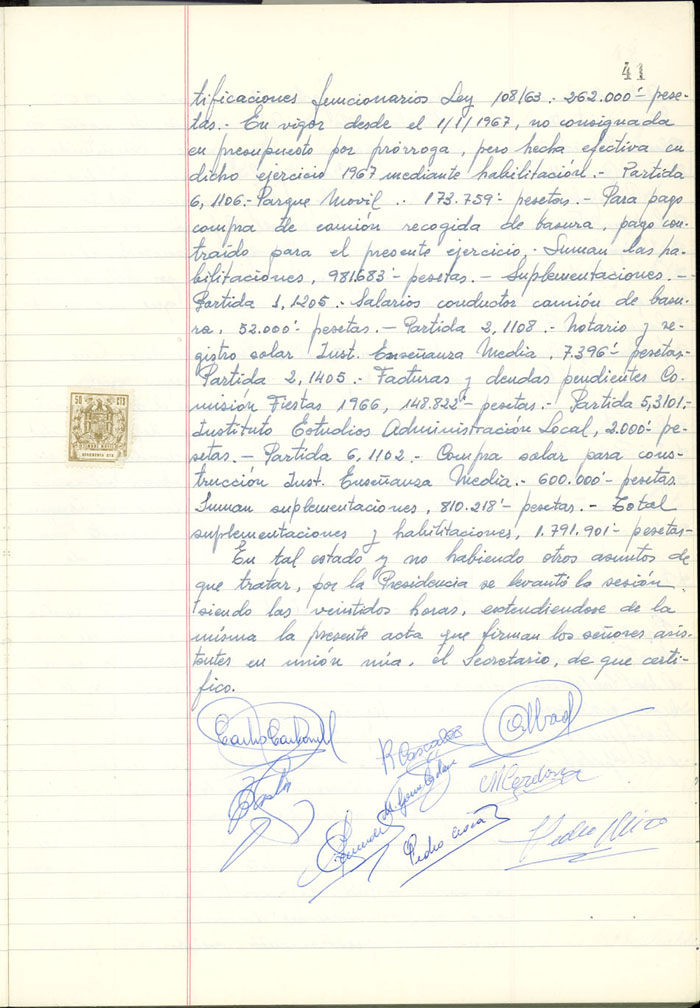 41
tificaciones funcionarios Ley 108/63.- 262.000'- pese-
tas.- En vigor desde el 1/1/1967, no consignada
en presupuesto por prórroga, pero hecha efectiva en
dicho ejercicio 1967 mediante habilitación.- Partida
6,1106.- Parque Movil .. 173.759'- pesetas.- Para pago
compra de camión recogida de basura, pago con-
traído para el presente ejercicio. Suman las ha-
bilitaciones, 981.683'- pesetas.- Suplementaciones.-
Partida 1,1205.- Salarios conductor camión de basu-
ra, 52.000'- pesetas.- Partida 2,1108.- Notario y re-
gistro solar Inst. Enseñanza Media, 7.396'- pesetas-
Partida 2,1405.- Facturas y deudas pendientes Co-
misión Fiestas 1966, 148.822'- pesetas.- Partida 5,3101.-
Instituto Estudios Administración Local, 2.000'- pe-
setas.- Partida 6,1102.- Compra solar para cons-
trucción Inst. Enseñanza Media.- 600.000'- pesetas
Suman suplementaciones, 810.218'- pesetas.- Total
suplementaciones y habilitaciones, 1.791.901'- pesetas-
En tal estado y no habiendo otros asuntos de
que tratar, por la Presidencia se levantó la sesión
siendo las veintidos horas, extendiendose de la
misma la presente acta que firman los señores asis-
tentes en unión mía, el Secretario, de que certi-
fico.
50 CTS
Carlos Carbonell
R Cascales
M Cerdosa
Pedro
Pedro Miro